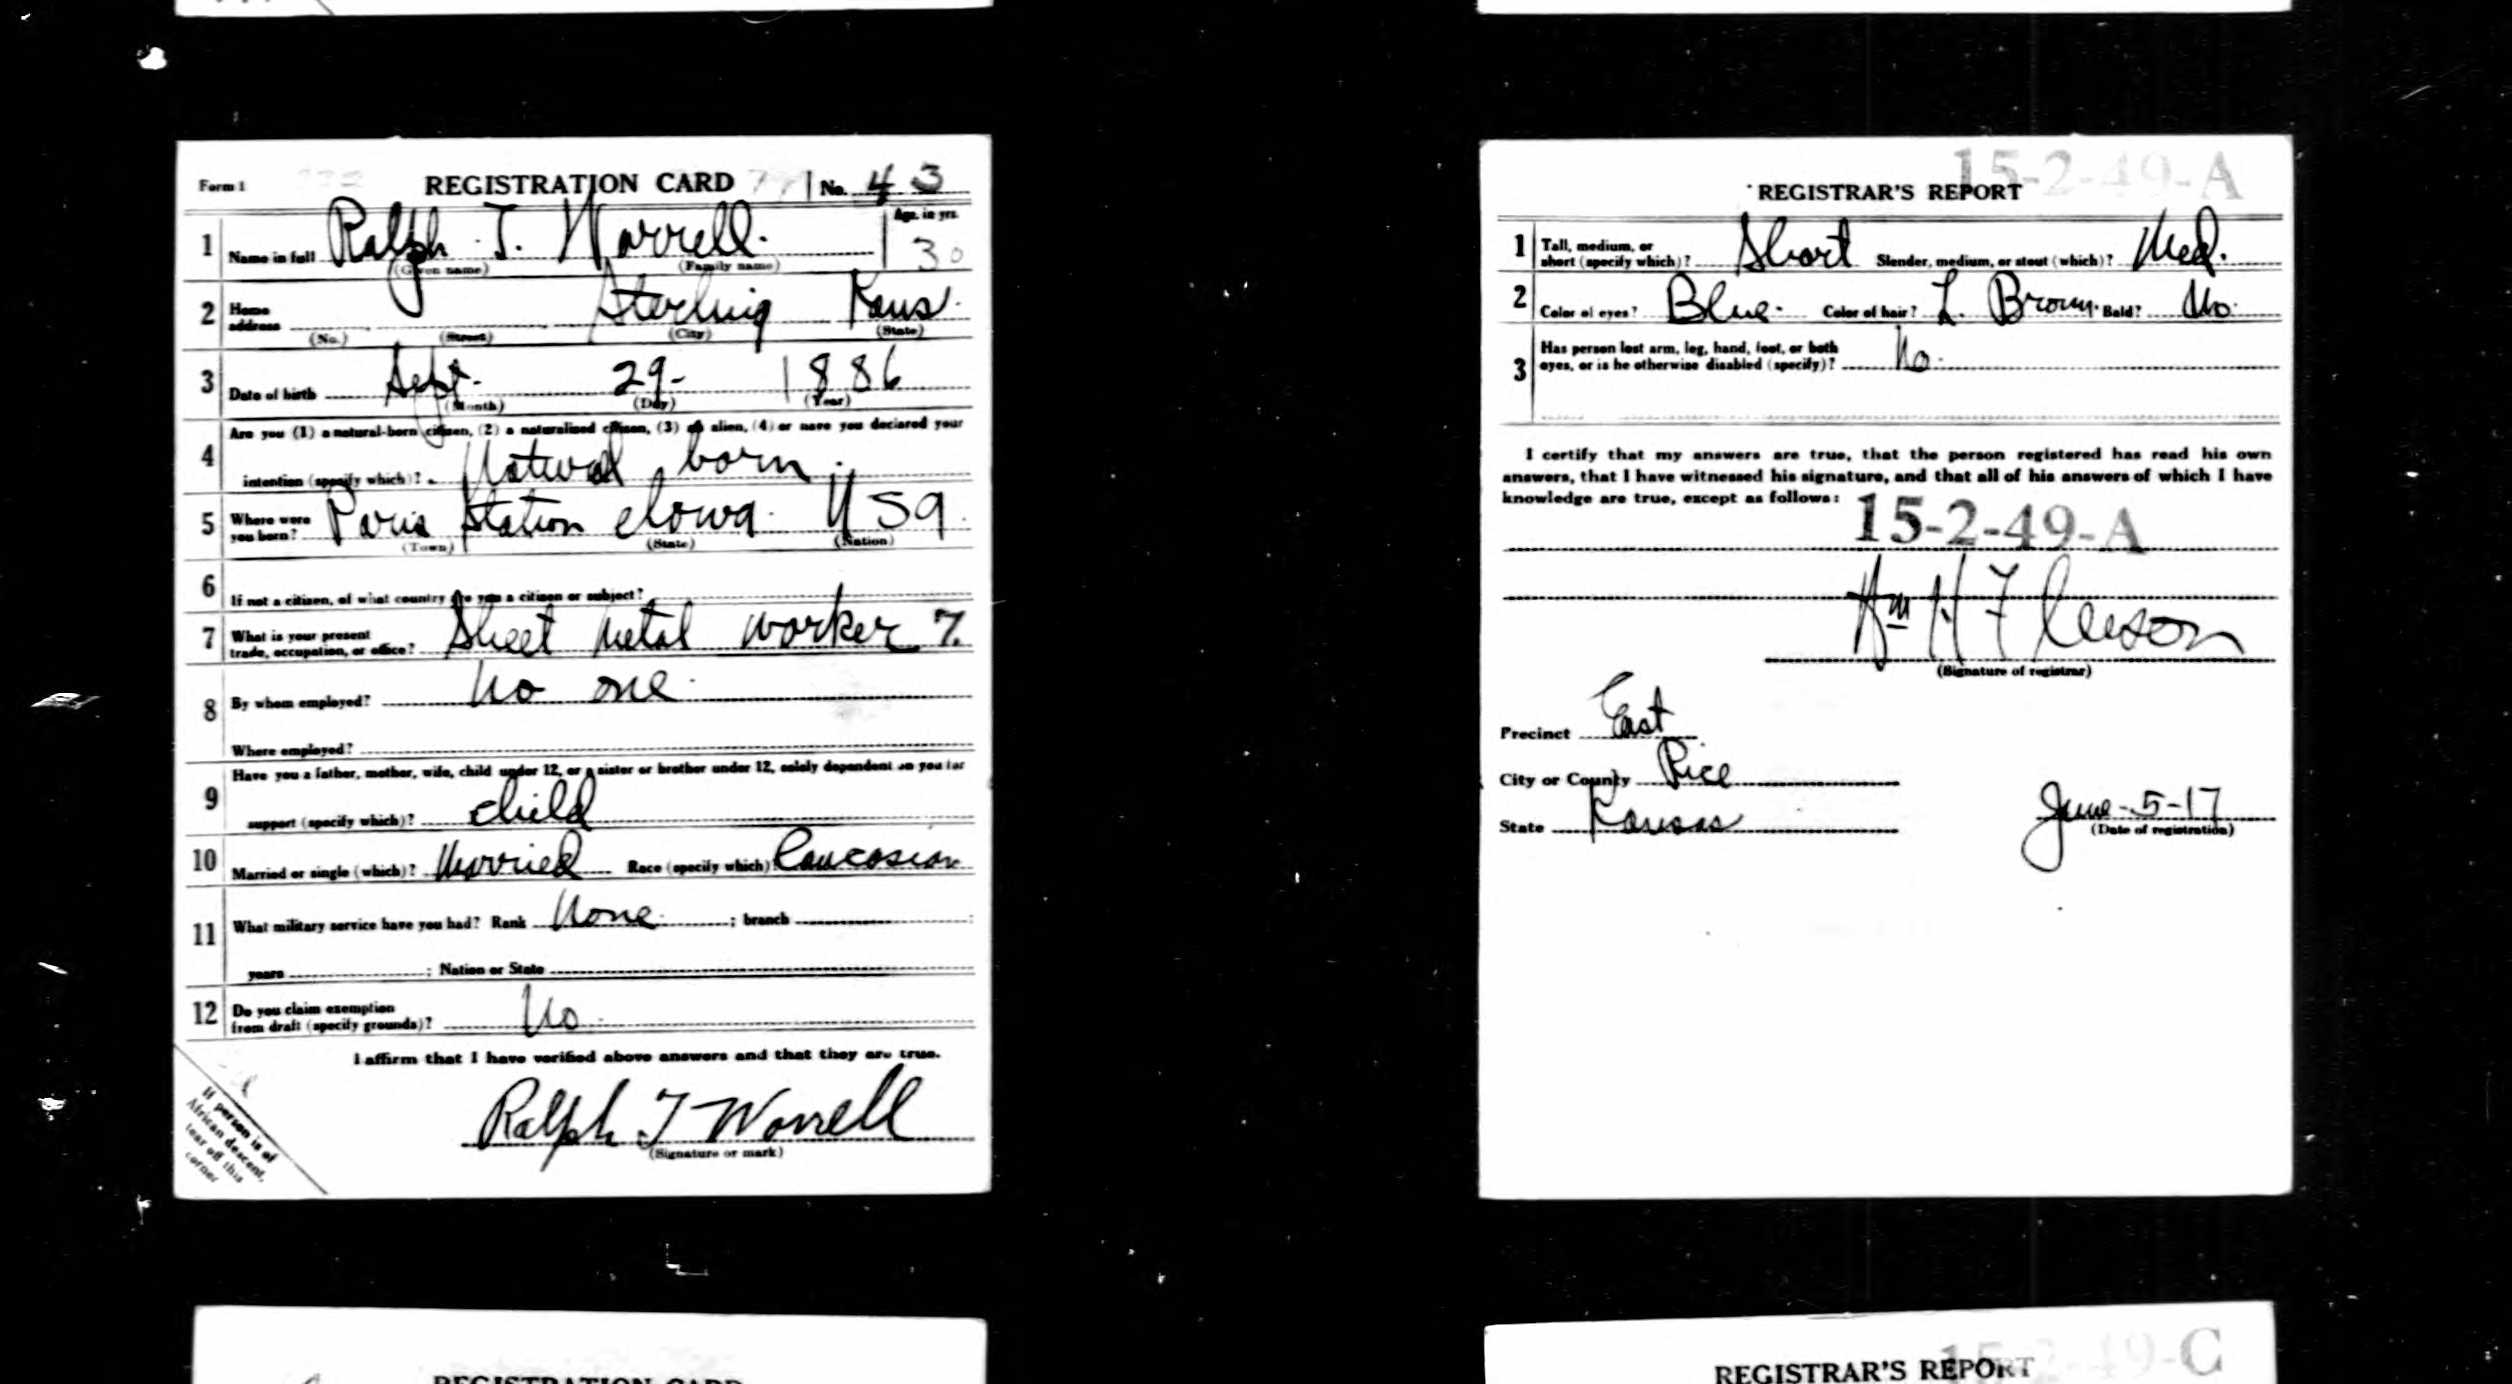 Form 1 REGISTRATION CARD No. 43
1 Name in full Ralph T. Worrell. Age, in yrs. 30
(Given name) (Family name)
2 Home address Sterling Kans.
(No.) (Street) (City) (State)
3 Date of birth Sept. 29- 1886
(Month) (Day) (Year)
4 Are you (1) a natural-born citizen, (2) a naturalized citizen, (3) an alien, (4) or have you declared your
intention (specify which)? Natural born.
5 Where were you born? Paris Station Iowa. USA.
(Town) (State) (Nation)
6 If not a citizen, of what country are you a citizen or subject?
7 What is your present
trade, occupation, or office? Sheet Metal worker 7.
8 By whom employed? No one.
Where employed?
9 Have you a father, mother, wife, child under 12, or a sister or brother under 12, solely dependent on you for
support (specify which)? child
10 Married or single (which)? Married Race (specify which)? Caucasian
11 What military service have you had? Rank None. ; branch ;
years ; Nation or State
12 Do you claim exemption
from draft (specify grounds)? No.
I affirm that I have verified above answers and that they are true.
Ralph T Worrell
(Signature or mark)
If person is of
African descent,
tear off this
corner
15-2-49-A
REGISTRAR'S REPORT
1 Tall, medium, or
short (specify which)? Short Slender, medium, or stout (which)? Med.
2 Color of eyes? Blue. Color of hair? L. Brown. Bald? No.
3 Has person lost arm, leg, hand, foot, or both
eyes, or is he otherwise disabled (specify)? No.
I certify that my answers are true, that the person registered has read his own
answers, that I have witnessed his signature, and that all of his answers of which I have
knowledge are true, except as follows:
15-2-49-A
Wm H F
(Signature of registrar)
Precinct East
City or County Rice
State Kansas
June-5-17
(Date of registration)
REGISTRATION CARD
15-2-49-C
REGISTRAR'S REPORT